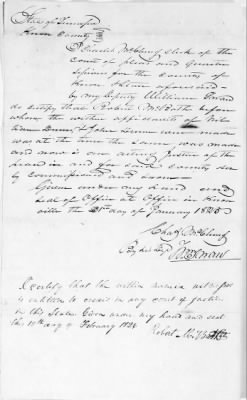 State of Tennessee
Knox County
I Charles McClung Clerk of the
Court of pleas and Quarter
Sessions for the County of
Knox
by my deputy William
do certify that Robert McBath before
whom the within affidavits of
and John were made
was at the time the same was made
and now is an acting Justice of the
peace in and for said County duly
Commissioned and sworn
Given under my hand and
Seal of Office at Office in Knox
ville the 21st day of January 1825
Chas McClung
By his
I certify that the within named witnesses
is entitled to credit in any court of justice
in this State Given under my hand and seal
this 10th day of February 1826
Robert McBath